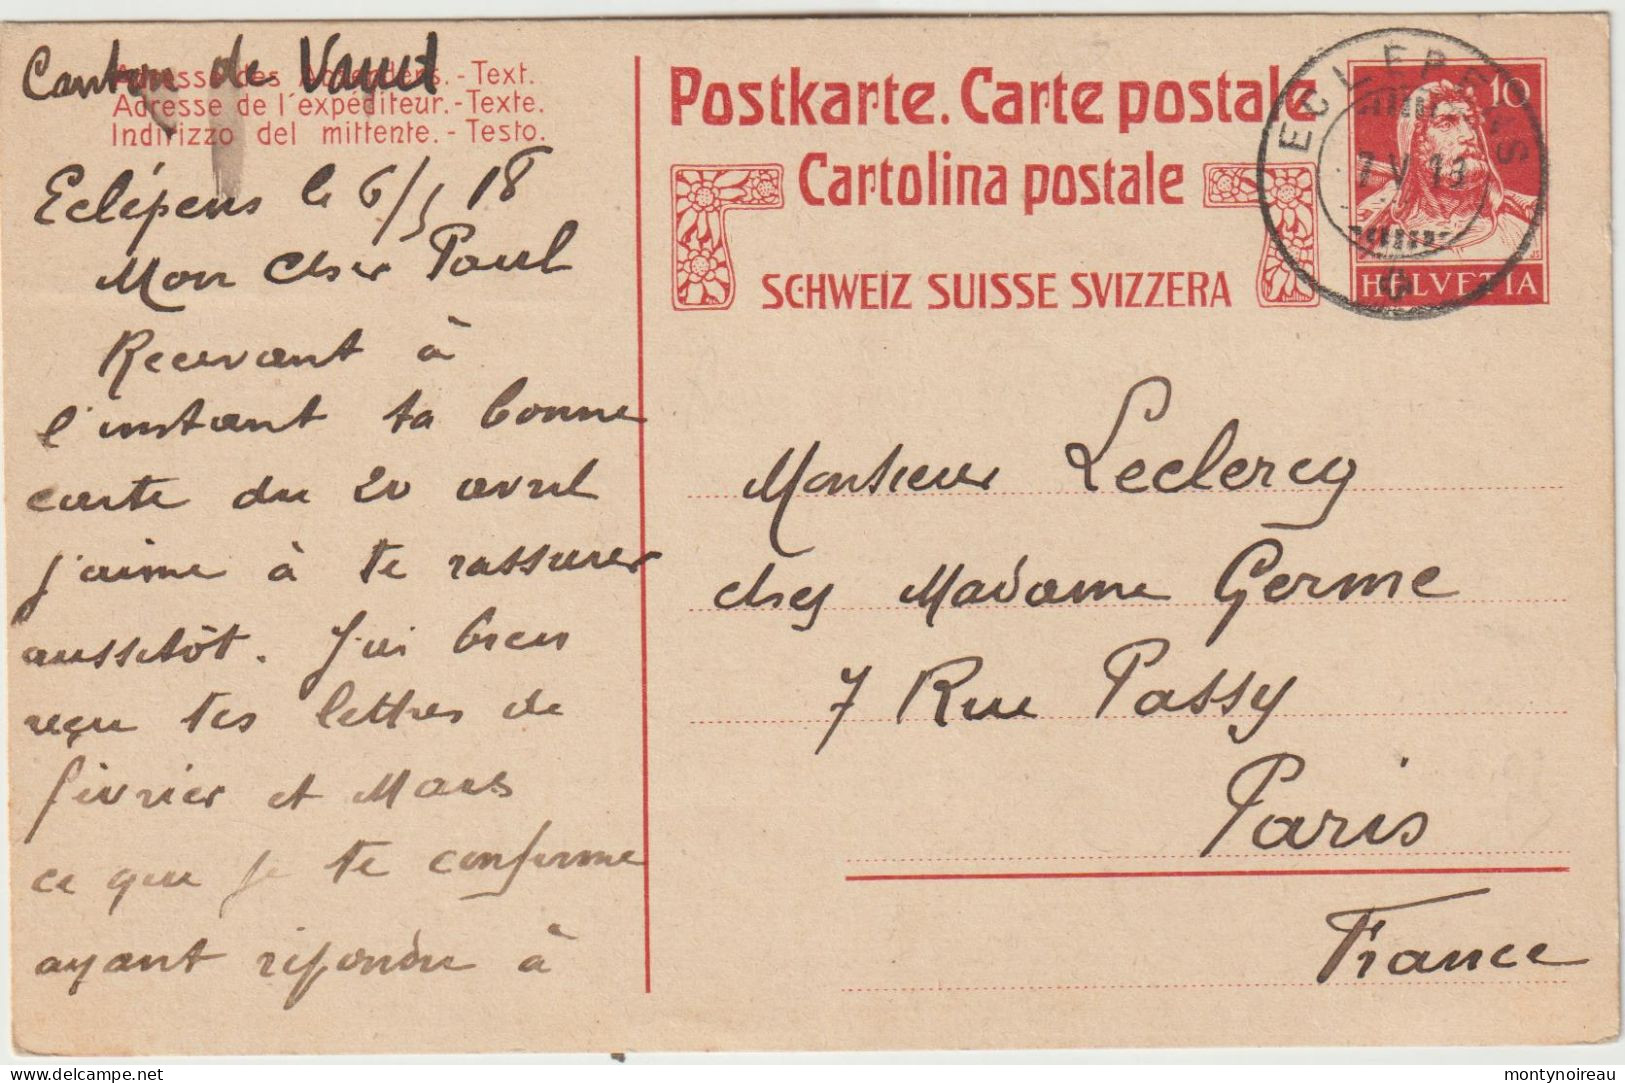 Canton de Vaud
Adresse des Absenders. - Text.
Adresse de l'expéditeur. - Texte.
Indirizzo del mittente. - Testo.
Eclépens le 6/5 18
Mon Cher Paul
Recevant à
l'instant ta bonne
carte du 20 avril
j'aime à te rassurer
aussitôt. J'ai bien
reçu tes lettres de
février et Mars
ce que je te confirme
ayant répondu à
Postkarte. Carte postale
Cartolina postale
SCHWEIZ SUISSE SVIZZERA
ECLEPENS
7 V 18
10
HELVETIA
Monsieur Leclercq
chez Madame Germe
7 Rue Passy
Paris
France
delcampe.net
montynoireau